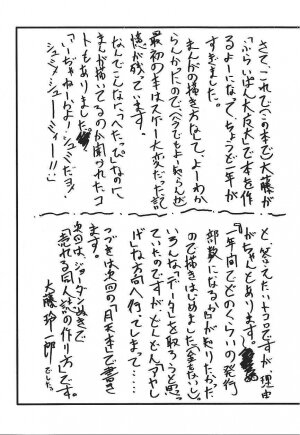 さて、これで(この本で)大藤が
「ぶらいぱん大反天」で本を作
るよーになって、ちょうど一年が
すぎました。
まんがの描き方なんて、よーわか
らんかったので、(今でもよー知らんが)
最初の1本はスゲー大変だった記
憶が残っています。
なんでこんなに「へたっぴ」なのに
まんが描いてるのか聞かれたコ
トもありました。
「いぢゃねーかよー!シュミだョ!
シュミ!シューミィーー!!」
と、答えたいトコロですが、理由
がちゃんとあります。
「一年間でどのくらいの発行
部数になるか?」が知りたかった
ので描きはじめました(金もないし)。
いろんな「データ」を取ろうと思っ
ていたのですが、どんどん「アヤし
げ」な方向へ行ってしまって…
つづきは次回の「月天本」で書き
ます。
次回は、ジョーダンぬきで
「売れる同人誌の作り方」です。
大藤玲一郎でした。